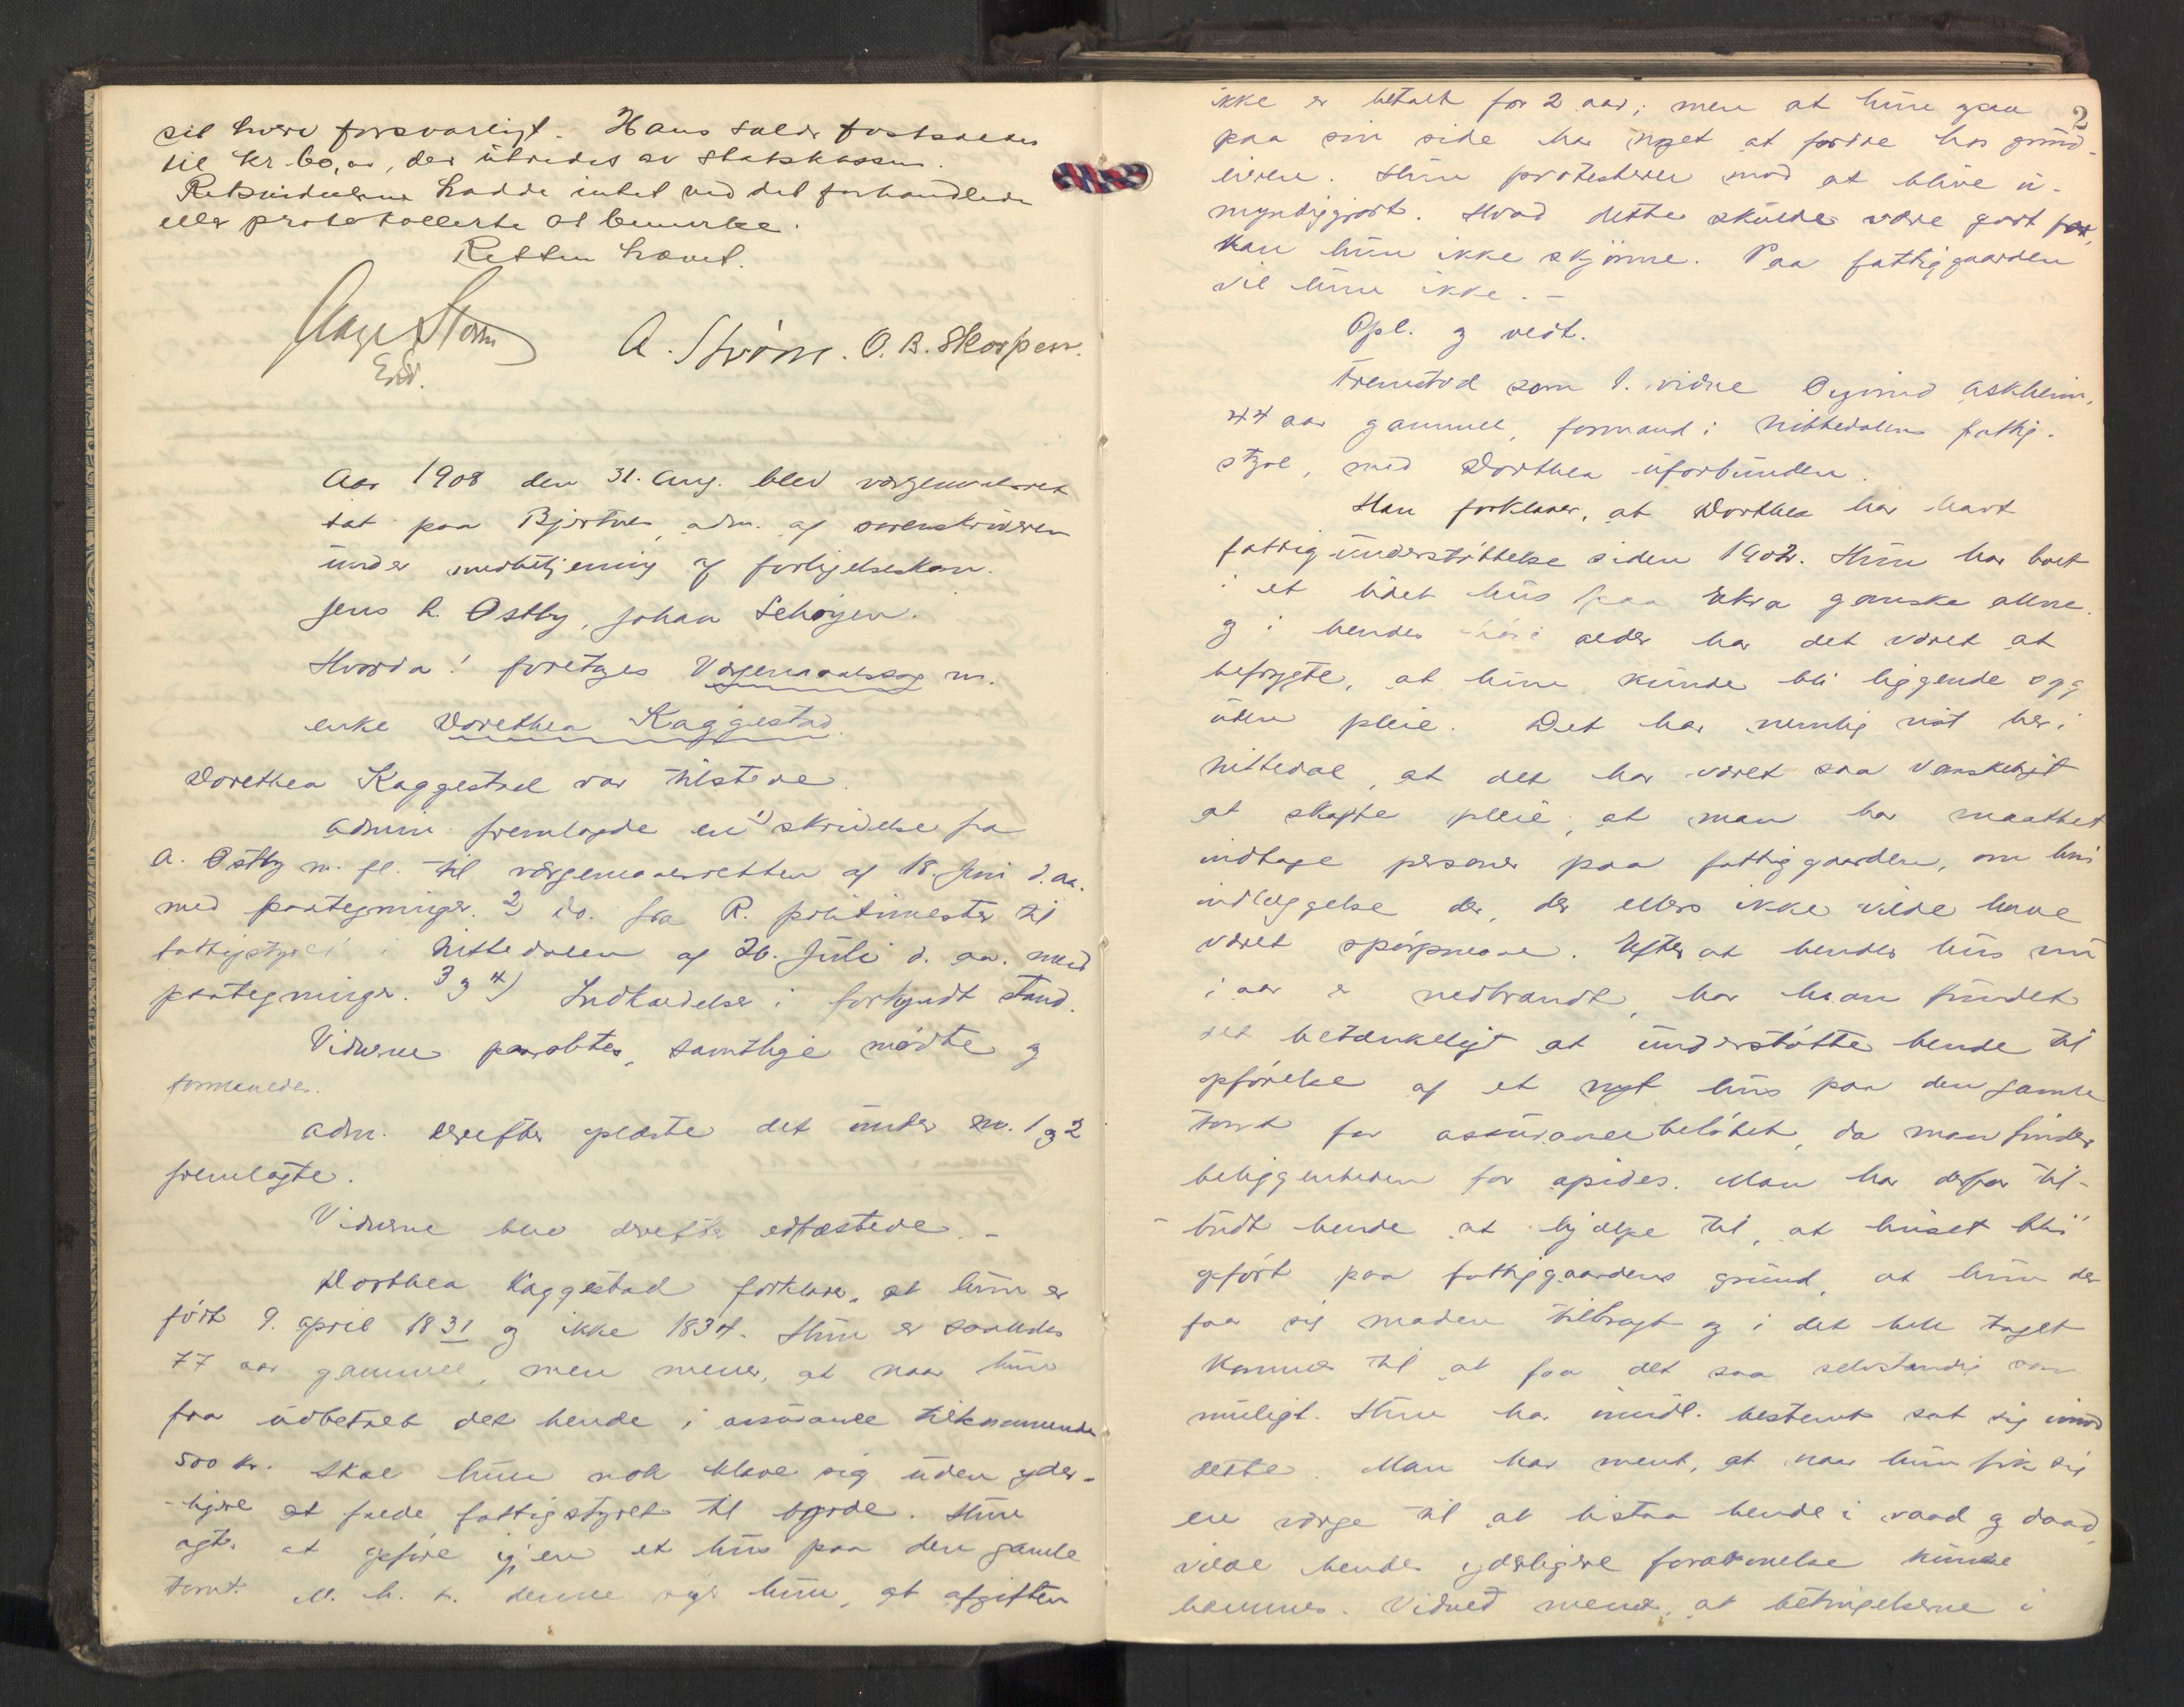 sit hverv forsvarligt. Hans salær fastsattes
til kr. 60,00, der utredes av statskassen.
Retsvidnerne hadde intet ved det forhandlede
eller protokollerte at bemerke.
Retten hævet.
Aage Storm A. Strøm. O. B. Skorpen.
Aar 1908 den 31. Aug. blev vergemaalsret
sat paa Bjertnes, adm. af sorenskriveren
under medbetjening af forligelseskom.
Jens L. Østby, Johan Sehøyen.
Hvorda! foretoges Vergemaalssag m.
enke Dorethea Kaggestad.
Dorethea Kaggestad var tilstede.
Admin. fremlagde en 1) skrivelse fra
A. Østby m. fl. til vergemaalsretten af 18. Juni d. aa.
med paategninger. 2) do. fra R. politimester til
fattigstyret i Nittedalen af 26. Juli d. aa. med
paategninger. 3 og 4) Indkaldelse i forkyndt stand.
Vidnerne paaraabtes, samtlige mødte og
formanedes.
Adm. derefter oplæste det under no. 1 og 2
fremlagte.
Vidnerne blev derefter edfæstede. –
Dorthea Kaggestad forklarer, at hun er
født 9. april 1831 og ikke 1834. Hun er saaledes
77 aar gammel, men mener, at naar hun
faar udbetalt det hende i assurance tilkommende
500 kr. skal hun nok klare sig uden yder-
-ligere at falde fattigstyret til byrde. Hun
agter at opføre igjen et hus paa den gamle
tomt. M. h. t. denne siger hun, at afgiften
2
ikke er betalt for 2 aar; men at hun ogsaa
paa sin side har noget at fordre hos grund-
eieren. Hun protesterer mod at blive u-
myndiggjort. Hvad dette skulde være gjort for,
kan hun ikke skjønne. Paa fattiggaarden
vil hun ikke. –
Opl. og vedt.
Fremstod som 1. vidne Øyvind Askheim,
44 aar gammel, formand i Nittedalens fattig-
styre, med Dorthea uforbunden.
Han forklarer, at Dorthea har havt
fattigunderstøttelse siden 1902. Hun har boet
i et lidet hus paa Ekra ganske alene.
og i hendes høie alder har det været at
befrygte, at hun kunde bli liggende syg
uden pleie. Det har nemlig vist her i
Nittedal, at det har været saa vanskeligt
at skaffe pleie, at man har maattet
indtage personer paa fattiggaarden, om hvis
indlæggelse der, der ellers ikke vilde have
været spørgsmaal. Efter at hendes hus nu
i aar er nedbrandt, har man fundet
det betænkeligt at understøtte hende til
opførelse af et nyt hus paa den gamle
tomt for assurancebeløbet, da man finder
beliggenheden for afsides. Man har derfor til-
- budt hende at hjælpe til, at huset bli
opført paa fattiggaardens grund, at hun der
faar sig maden tilbragt og i det hele taget
kommer til at faa det saa selvstændig som
muligt. Hun har imidl. bestemt sat sig imod
dette. Man har ment, at naar hun fik sig
en verge til at bistaa hende i raad og daad,
vilde hendes yderligere forarmelse kunne
hemmes. Vidnet mener, at betingelserne i